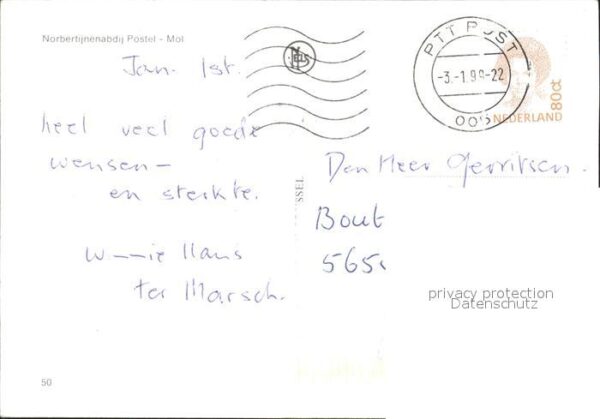 Norbertijnenabdij Postel - Mol
Jan. 1st.
heel veel goede
wensen -
en sterkte.
Hans
ter Marsch.
50
SSEL
PTT POST
-3.-1.9 -22
80ct
NEDERLAND
Den Heer Gerritsen.
Bout
565
privacy protection
Datenschutz